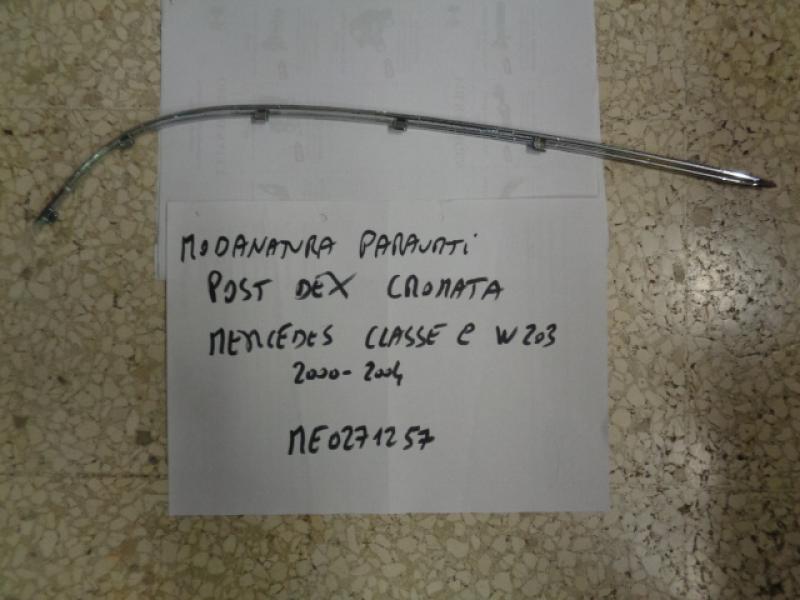 MODANATURA PARAURTI
POST DEX CROMATA
MERCEDES CLASSE C W203
2000-2004
ME0271257